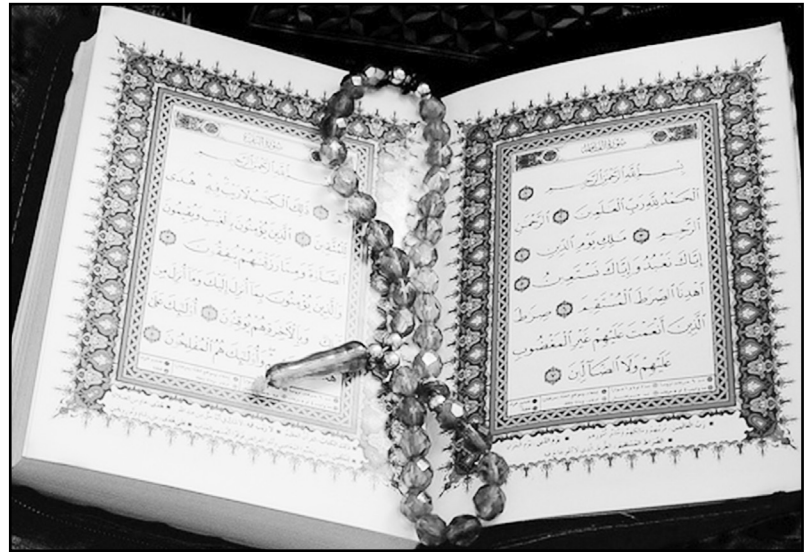 سُورَةُ الْفَاتِحَة
بِسْمِ اللَّهِ الرَّحْمَٰنِ الرَّحِيمِ
الْحَمْدُ لِلَّهِ رَبِّ الْعَٰلَمِينَ الرَّحْمَٰنِ
الرَّحِيمِ مَٰلِكِ يَوْمِ الدِّينِ
إِيَّاكَ نَعْبُدُ وَإِيَّاكَ نَسْتَعِينُ
اهْدِنَا الصِّرَٰطَ الْمُسْتَقِيمَ صِرَٰطَ
الَّذِينَ أَنْعَمْتَ عَلَيْهِمْ غَيْرِ الْمَغْضُوبِ
عَلَيْهِمْ وَلَا الضَّآلِّينَ
سُورَةُ الْبَقَرَة
بِسْمِ اللَّهِ الرَّحْمَٰنِ
ذَٰلِكَ الْكِتَٰبُ لَا رَيْبَ فِيهِ هُدًى
لِلْمُتَّقِينَ الَّذِينَ يُؤْمِنُونَ بِالْغَيْبِ وَيُقِيمُونَ
الصَّلَوٰةَ وَمِمَّا رَزَقْنَٰهُمْ يُنفِقُونَ
وَالَّذِينَ يُؤْمِنُونَ بِمَا أُنزِلَ إِلَيْكَ وَمَا أُنزِلَ مِن
وَبِالْآخِرَةِ هُمْ يُوقِنُونَ أُولَٰئِكَ عَلَىٰ
وَأُولَٰئِكَ هُمُ الْمُفْلِحُونَ